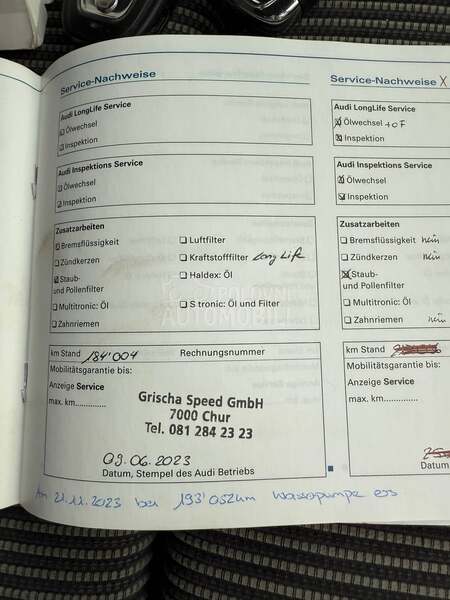 Service-Nachweise
Audi LongLife Service
Ölwechsel
Inspektion
Audi Inspektions Service
Ölwechsel
Inspektion
Zusatzarbeiten
Bremsflüssigkeit
Zündkerzen
Staub-
und Pollenfilter
Multitronic: Öl
Zahnriemen
Luftfilter
Kraftstofffilter Long Life
Haldex: Öl
S tronic: Öl und Filter
AUTOMOBILI
km Stand 184'004 Rechnungsnummer
Mobilitätsgarantie bis:
Anzeige Service
max. km.............
Grischa Speed GmbH
7000 Chur
Tel. 081 284 23 23
09.06.2023
Datum, Stempel des Audi Betriebs
Am 21.11.2023 bei 193'052km Wasserpumpe ers
Service-Nachweise X
Audi LongLife Service
Ölwechsel +OF
Inspektion
Audi Inspektions Service
Ölwechsel
Inspektion
Zusatzarbeiten
Bremsflüssigkeit nein
Zündkerzen nein
Staub-
und Pollenfilter
Multitronic: Öl
Zahnriemen nein
km Stand
Mobilitätsgarantie bis:
Anzeige Service
max. km.............
Datum